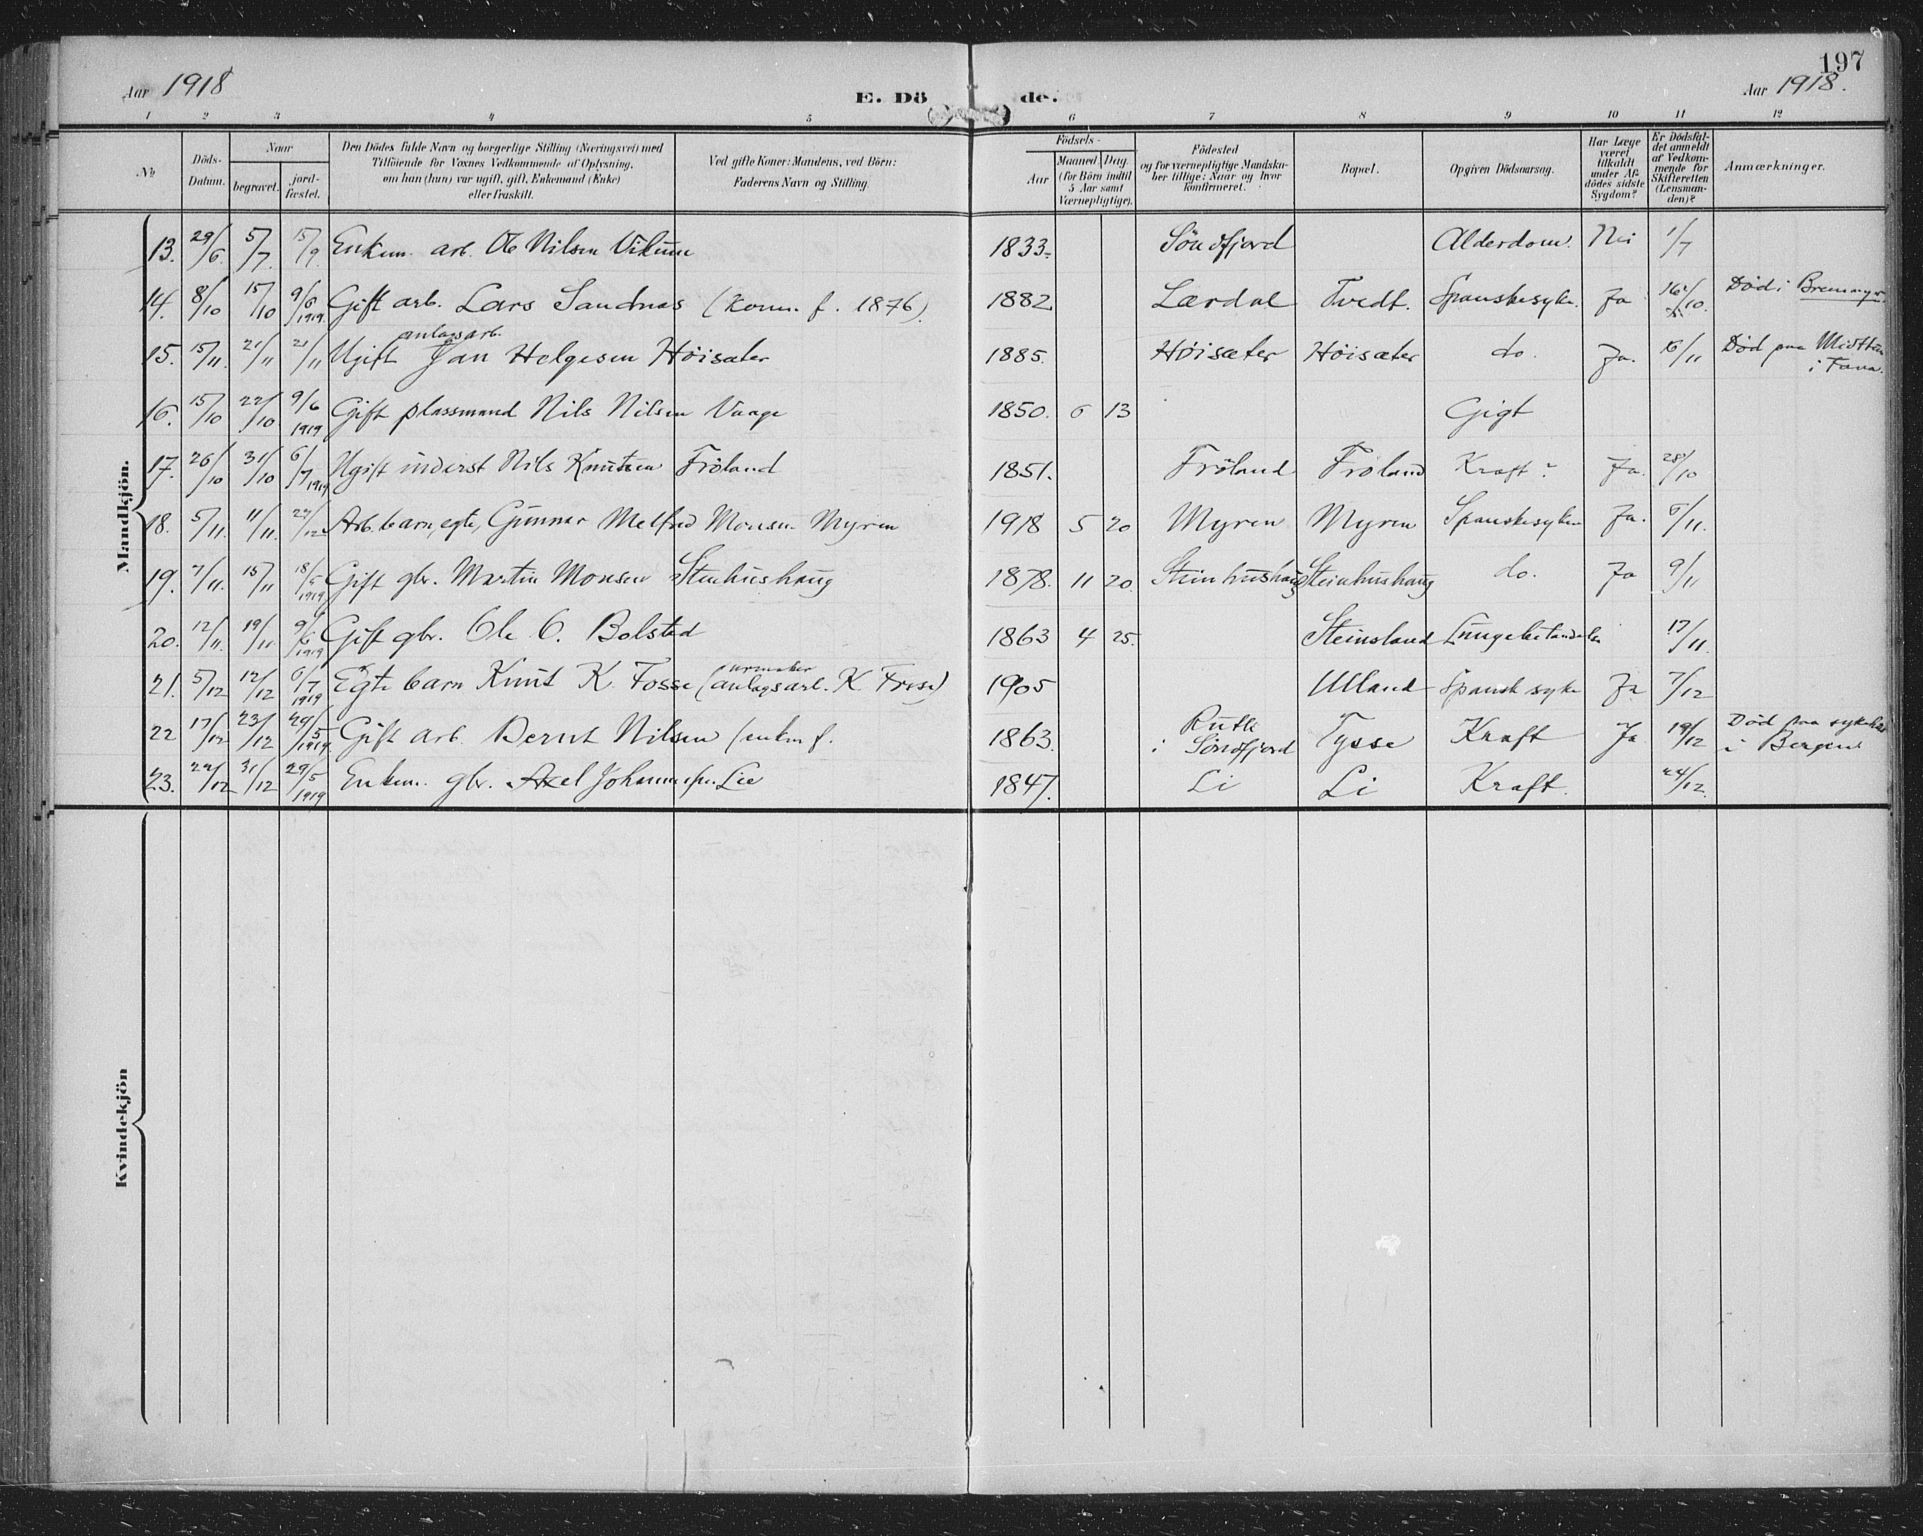 197
Aar 1918
E. Döde.
Aar 1918.
1 2 3 4 5 6 7 8 9 10 11 12
No
Döds-Datum.
Naar
begravet.
jordfæstet.
Den Dödes fulde Navn og borgerlige Stilling (Næringsvei) med
Tilföiende for Voxnes Vedkommende af Oplysning,
om han (hun) var ugift, gift, Enkemand (Enke)
eller fraskilt.
Ved gifte Koner: Mandens, ved Börn:
Faderens Navn og Stilling.
Födsels-
Aar
Maaned Dag
(for Börn indtil
5 Aar samt
Værnepligtige).
Födested
og for værnepligtige Mandskaber tillige: Naar og hvor
konfirmeret.
Bopæl.
Opgiven Dödsaarsag.
Har Læge
været
tilkaldt
under Afdödes sidste
Sygdom?
Er Dödsfaldet anmeldt
af Vedkommende for
Skifteretten
(Lensmanden)?
Anmærkninger.
Mandkjön.
13. 29/6 5/7 15/9 Enkem. arb. Ole Nilsen Vikum 1833. Söndfjord Alderdom. Nei 1/7
14. 8/10 15/10 9/6 1919 Gift arb. Lars Sandnæs (konn. f. 1876) 1882 Lærdal Tvedt. Spanskesyke. Ja 16/10. Död i
anlagsarb.
15. 15/11. 21/11 21/11 Ugift Jan Helgesen Höisæter 1885. Höisæter Höisæter do. Ja. 16/11 Död paa Midttun
i Fana.
16. 15/10 22/10 9/6 1919 Gift plassmand Nils Nilsen Vaage 1850. 6 13 Gigt
17. 26/10 31/10 6/7 1919 Ugift inderst Nils Knutsen Fröland 1851. Fröland Fröland Kraft? Ja. 28/10
18. 5/11. 11/11. 27/12 Arb. barn, egte, Gunnar Melfred Monsen Myren 1918 5 20 Myren Myren Spanskesyken Ja. 6/11.
19. 7/11. 15/11 18/5 1919 Gift gbr. Martin Monsen Steinhushaug 1878. 11 20. Steinhushaug Steinhushaug do. Ja 9/11
20. 12/11. 19/11. 9/6 1919 Gift gbr. Ole O. Bolstad 1863 4 25. Steinsland Lungebetændelse 17/11.
urmaker
21. 5/12 12/12 6/7 1919 Egte barn Knut K. Fosse (anlagsarb. K. Fosse) 1905 Ulland Spansk syke Ja 7/12
22 17/12 23/12 29/5 1919. Gift arb. Bernt Nilsen (enkm f. 1863. i Söndfjord Tysse Kraft Ja 19/12 Död paa sykehus
i Bergen
23. 22/12 31/12 29/5 1919 Enkem. gbr. Axel Johannesen Lie 1847. Li Li Kraft. 24/12.
Kvindekjön